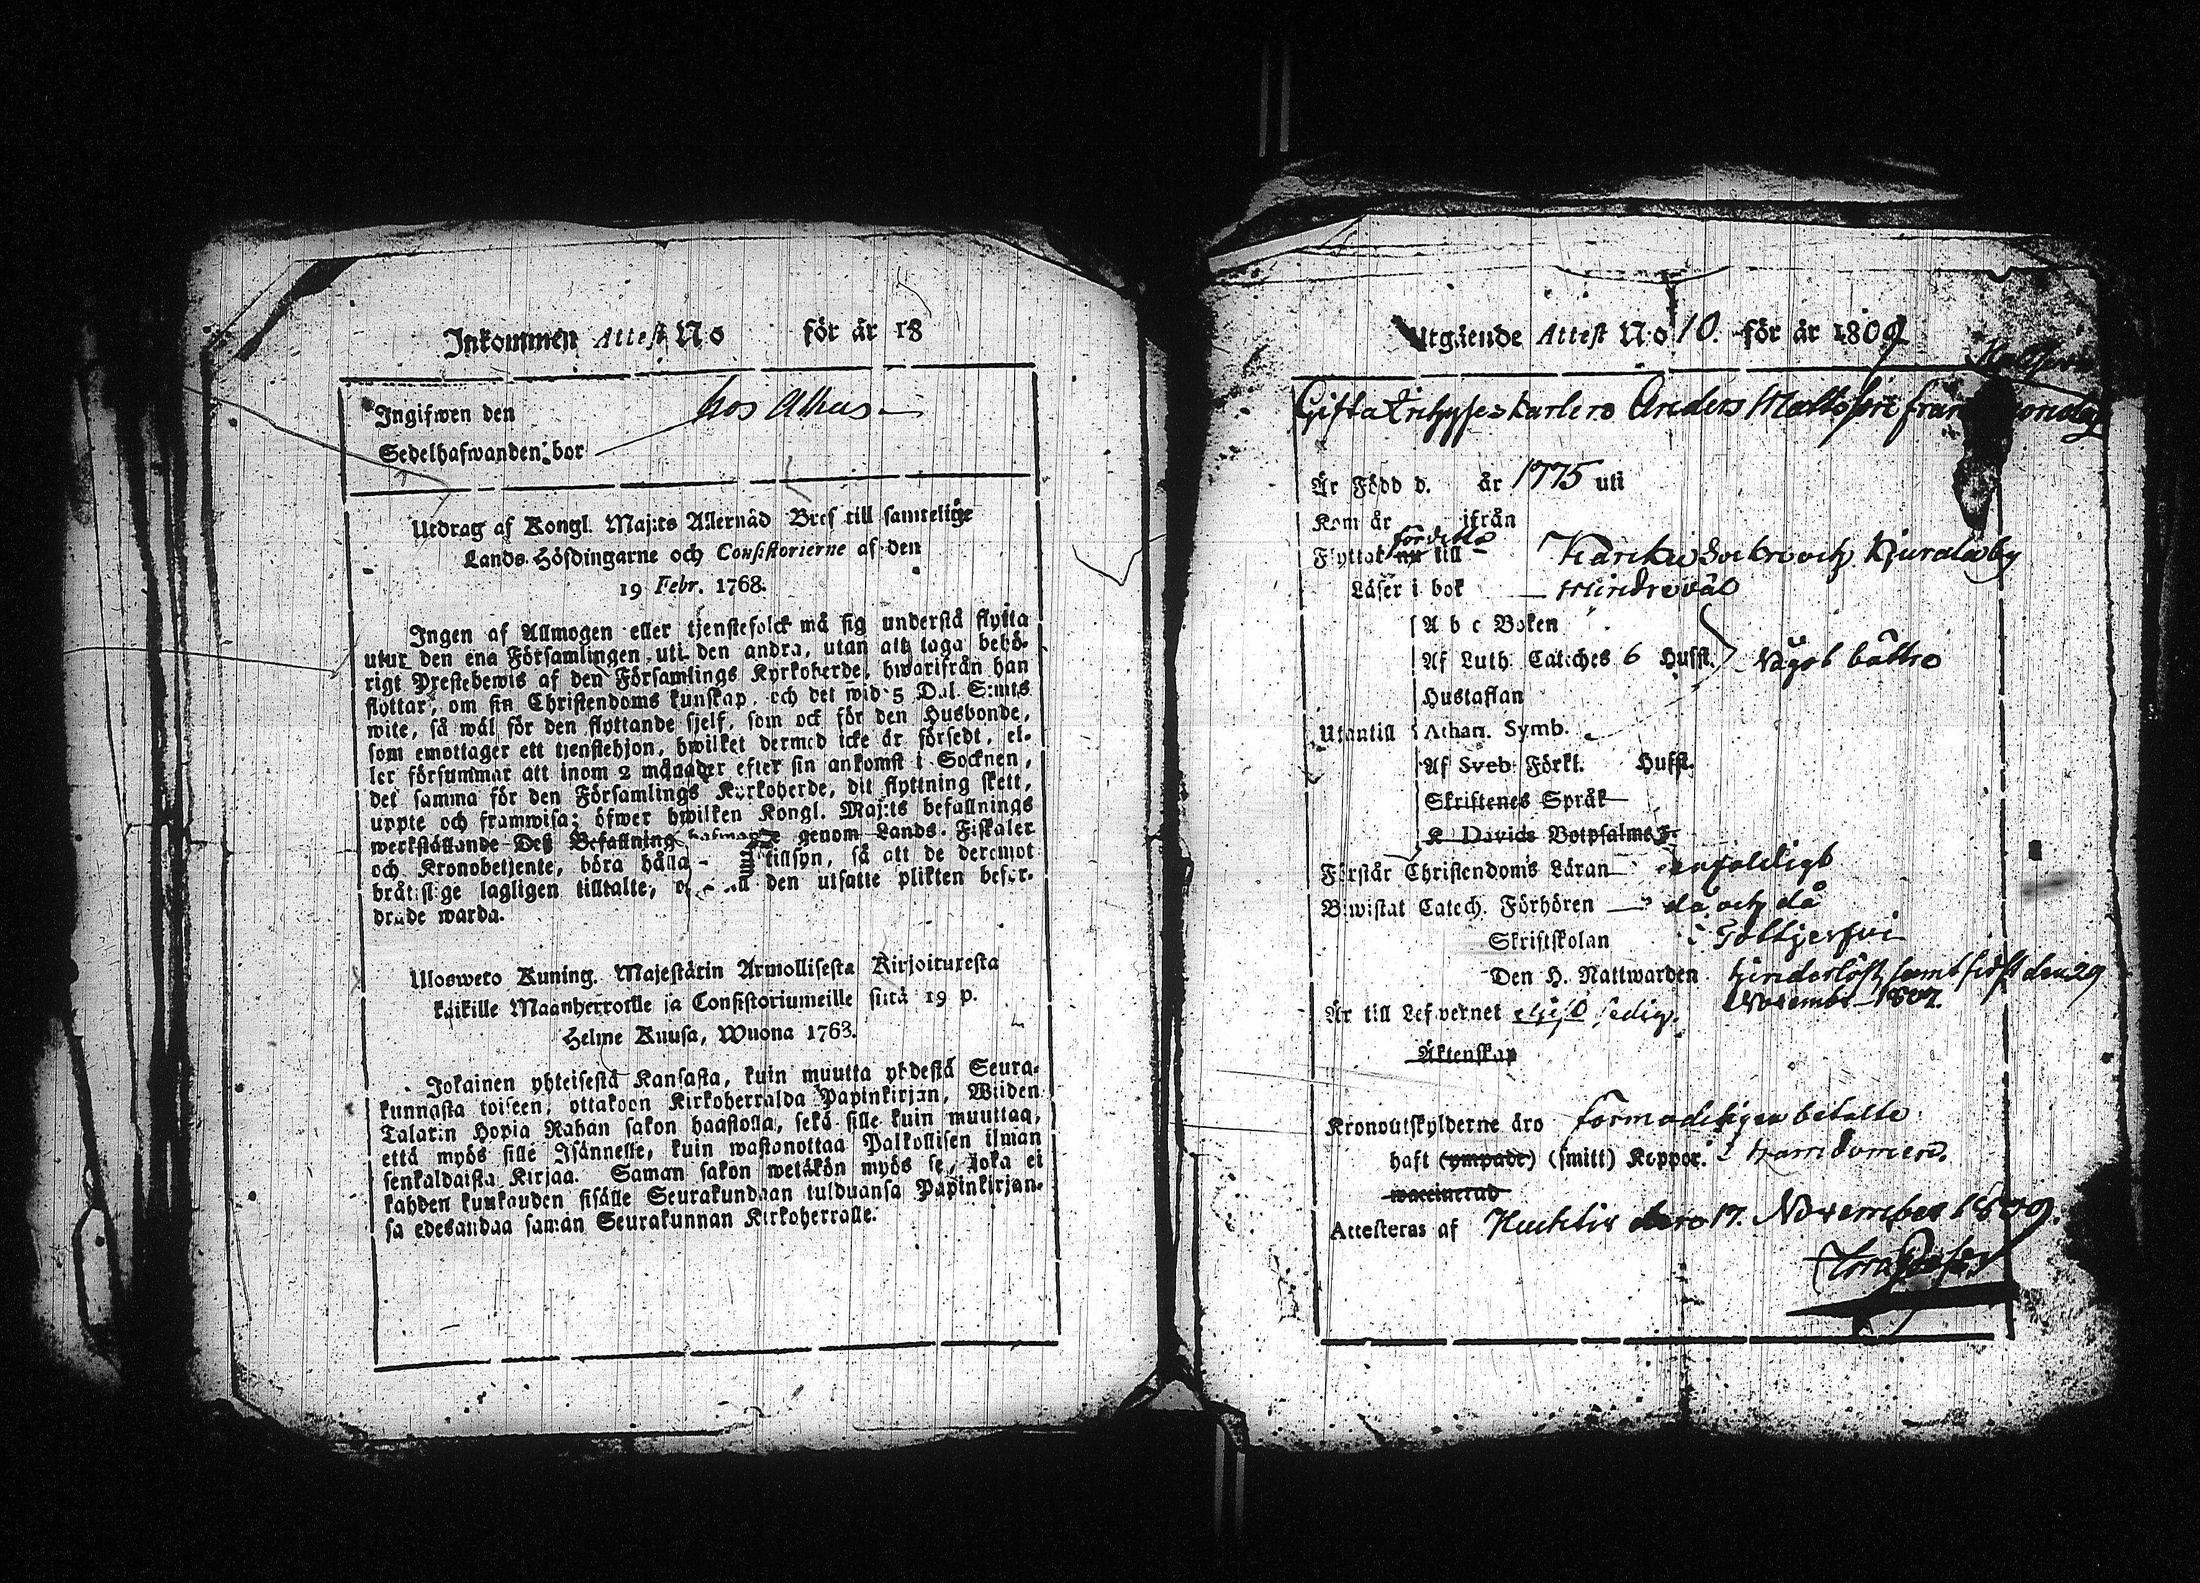 Inkommen Attest No för år 18
Ingifwen den
Sedelhafwanden bor hos Alhus
Utdrag af Kongl. Maj:ts Allernåd Bref till samtelige
Lands Höfdingarne och Consistorierne af den
19 Febr. 1768.
Ingen af Allmogen eller tjenstefolck må sig understå flytta
utur den ena Församlingen uti den andra, utan att taga behö-
rigt Prestebewis af den Församlings Kyrkoherde, hwarifrån han
flyttar, om sin Christendoms kunskap, och det wid 5 Dal. S:mts
wite, så wäl för den flyttande sjelf, som ock för den Husbonde,
som emottager ett tjenstehjon, hwilket dermed icke är försedt, el-
ler försummar att inom 2 månader efter sin ankomst i Socknen,
det samma för den Församlings Kyrkoherde, dit flyttning skett,
uppte och framwisa; öfwer hwilken Kongl. Maj:ts befallnings
werkställande Deß Befallning hafwande genom Lands-Fiskaler
och Kronobetjente, böra hålla tillsyn, så att de deremot
bråtslige lagligen tilltalte, den utsatte plikten befor-
drade warda.
Ulosweto Kuning. Majestätin Armollisesta Kirjoituxesta
kaikille Maanherroille ja Consistoriumeille siitä 19 p.
Helme Kuusa, Wuona 1763.
Jokainen yhteisestä Kansasta, kuin muutta yhdestä Seura-
kunnasta toiseen, ottakoon Kirkoherralda Papinkirjan, Wiiden
Talarin Hopia Rahan sakon haastolla, sekä sille kuin muuttaa,
että myös sille Isännelle, kuin wastanottaa Palkollisen ilman
senkaldaista Kirjaa. Saman sakon wetäkön myös se, joka ei
kahden kuukauden sisälle Seurakundaan tulduansa Papinkirjan-
sa edesandaa saman Seurakunnan Kirkoherralle.
Utgående Attest No 10. för år 1809
Gifta Anders Mattsson från
Är Född d. år 1775 uti
Kom år ifrån
Flyttat nu till Karcku Sockn och Kjurala by
Läser i bok mindre väl
A b c Boken
Af Luth. Cateches 6 Hufst. Något bättre
Hustaflan
Utantill Athan. Symb.
Af Sveb. Förkl. Hufst.
Skriftenes Språk
K Davids Botpsalmer
Förstår Christendoms Läran enfaldigt
Biwistat Catech. Förhören då och då
Skriftskolan
Den H. Nattwarden samt sidst den 29
Novembr 1807.
Är till Lefvernet sedig.
Äktenskap
Kronoutskylderne äro förmodeligen betalte
haft (ympade) (smitt) Koppor. i barndomen.
waccinerad
Attesteras af Huittis den 17. November 1809.